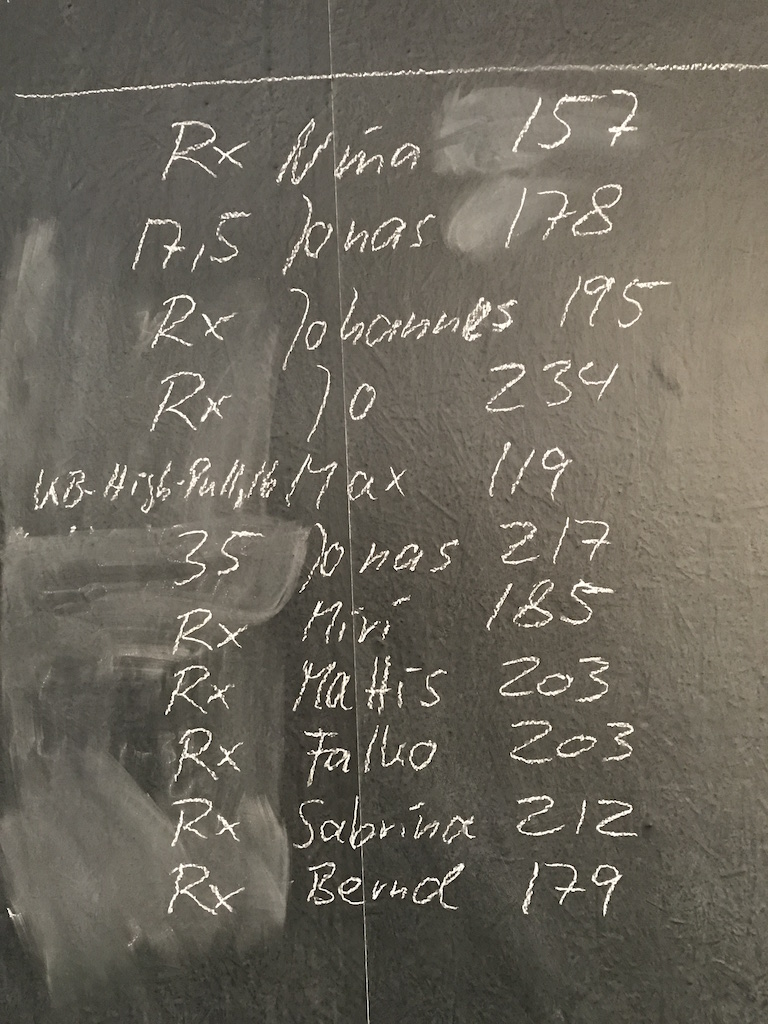 Rx Nina 157
17,5 Jonas 178
Rx Johannes 195
Rx Jo 234
KB-High-Pull,16 Max 119
35 Jonas 217
Rx Miri 185
Rx Mattis 203
Rx Falko 203
Rx Sabrina 212
Rx Bernd 179